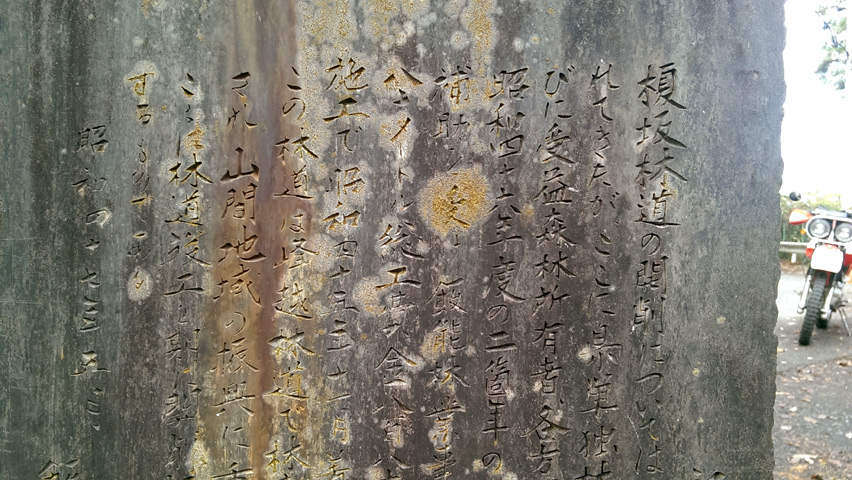 榎坂林道の開削については
れてきたが ここに県単独林
びに受益森林所有者各方
昭和四十六年度の二箇年の
補助を受け 飯能林業事
メートル 総工費 金八百
施工で昭和四十五年十一月着
この林道は峰越林道で林
され 山間地域の振興に
ここに林道竣工を期
するものである
昭和四十七年五月
飯